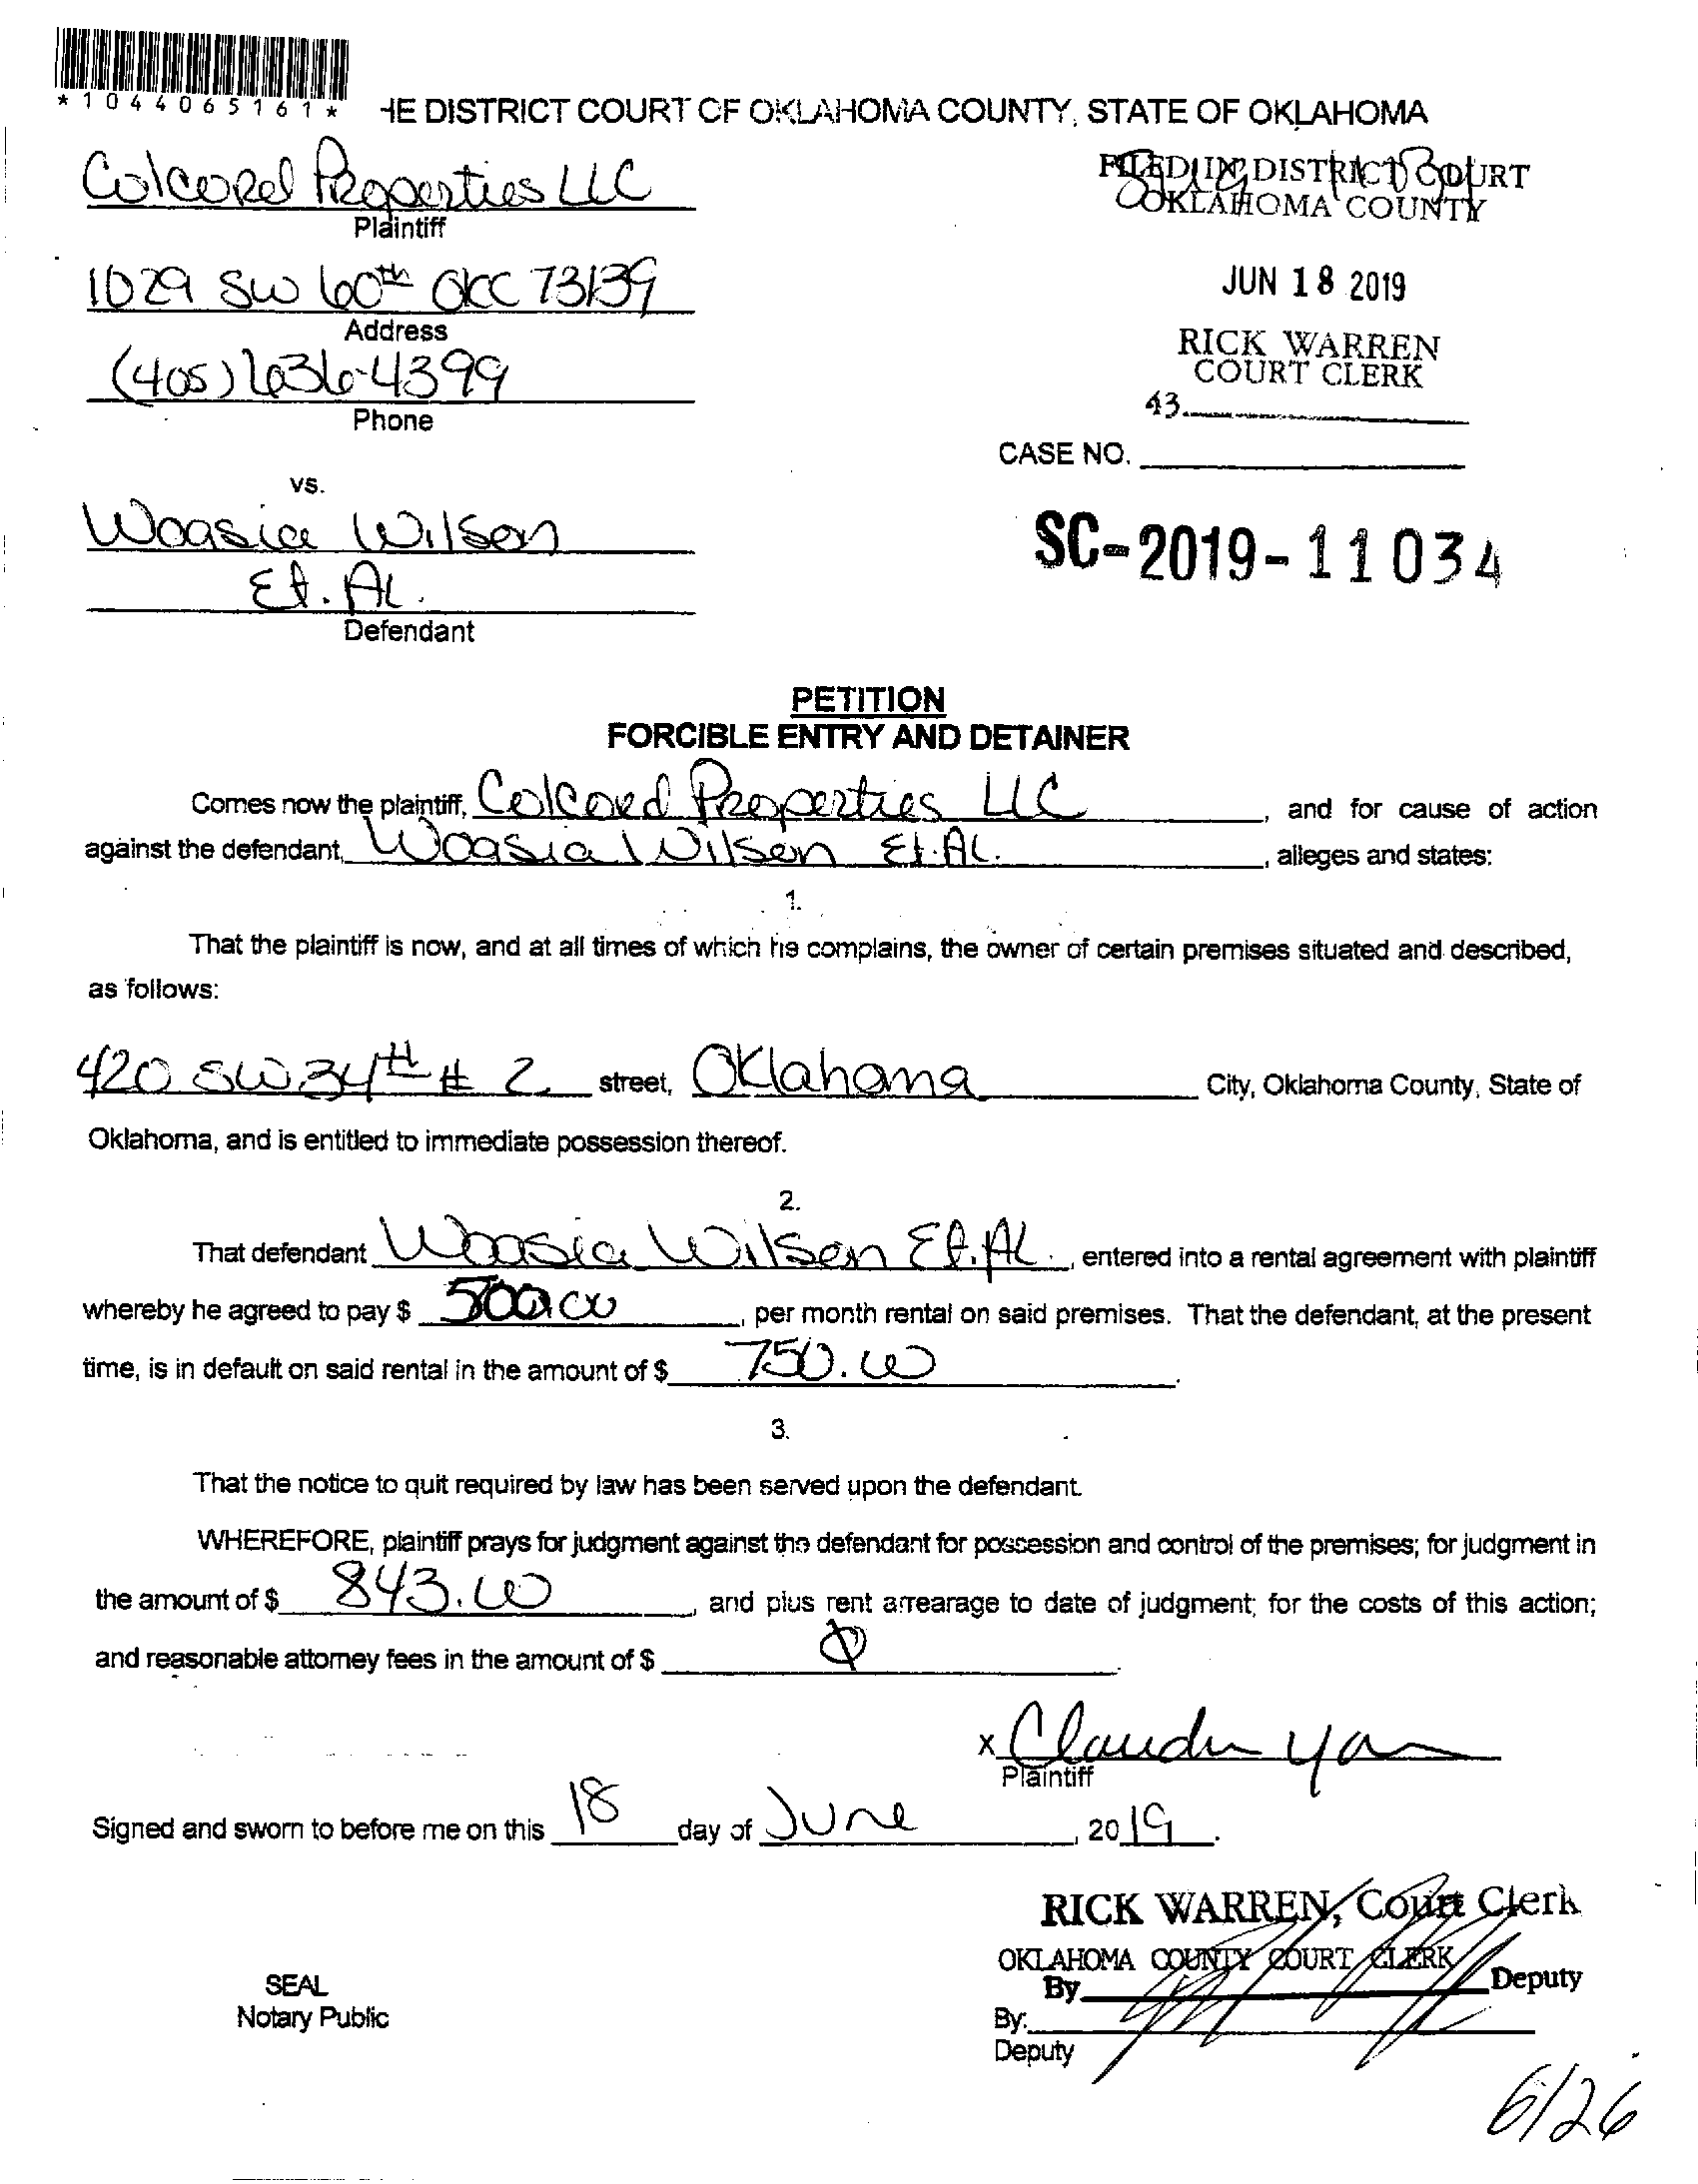 *1044065161*
HE DISTRICT COURT OF OKLAHOMA COUNTY, STATE OF OKLAHOMA
Colcord Properties LLC
Plaintiff
FILED IN DISTRICT COURT
OKLAHOMA COUNTY
1029 SW 60th OKC 73139
Address
JUN 18 2019
(405) 636-4399
Phone
RICK WARREN
COURT CLERK
43
CASE NO.
vs.
Woasia Wilson
Et. Al.
Defendant
SC-2019-11034
PETITION
FORCIBLE ENTRY AND DETAINER
Comes now the plaintiff, Colcord Properties LLC, and for cause of action
against the defendant, Woasia Wilson Et. Al., alleges and states:
1.
That the plaintiff is now, and at all times of which he complains, the owner of certain premises situated and described,
as follows:
420 SW 34th # 2 street, Oklahoma City, Oklahoma County, State of
Oklahoma, and is entitled to immediate possession thereof.
2.
That defendant Woasia Wilson Et. Al., entered into a rental agreement with plaintiff
whereby he agreed to pay $ 500.00, per month rental on said premises. That the defendant, at the present
time, is in default on said rental in the amount of $ 750.00.
3.
That the notice to quit required by law has been served upon the defendant.
WHEREFORE, plaintiff prays for judgment against the defendant for possession and control of the premises; for judgment in
the amount of $ 843.00, and plus rent arrearage to date of judgment; for the costs of this action;
and reasonable attorney fees in the amount of $ 0.
x Claudia
Plaintiff
Signed and sworn to before me on this 18 day of June, 2019.
RICK WARREN, Court Clerk
OKLAHOMA COUNTY COURT CLERK
By Deputy
SEAL
Notary Public
By:
Deputy
6/26